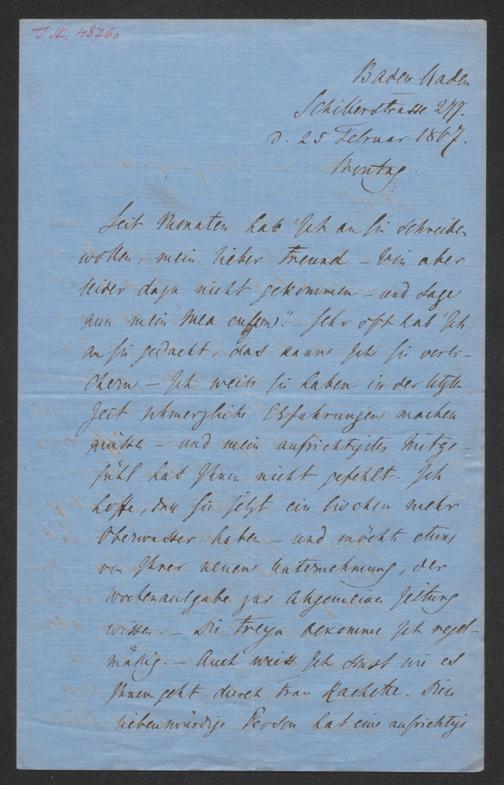 J.N. 48760
Baden Baden
Schillerstrasse 277.
d. 25 Februar 1867.
Montag.
Seit Monaten hab' Ich an Sie schreiben
wollen, mein lieber Freund – bin aber
leider dazu nicht gekommen – und sage
nun mein "Mea culpa". – Sehr oft hab' Ich
an Sie gedacht, das kann Ich Sie versi-
chern – Ich weiss Sie haben in der letzten
Zeit schmerzliche Erfahrungen machen
müssen – und mein aufrichtigstes Mitge-
fühl hat Ihnen nicht gefehlt. Ich
hoffe, dass Sie jetzt ein bischen mehr
Oberwasser haben – und möchte etwas
von Ihrer neuen Unternehmung, der
Wochenausgabe zur Allgemeinen Zeitung
wissen. – Die Freya bekomme Ich regel-
mässig. – Auch weiss Ich sonst wie es
Ihnen geht durch Frau Kachette. Diese
liebenswürdige Person hat eine aufrichtige